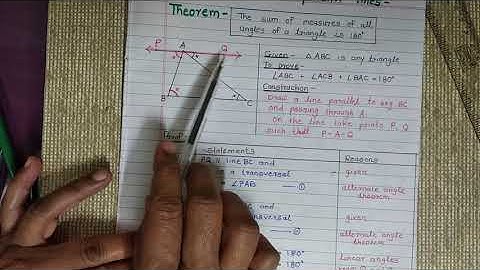 lines-
Theorem- The sum of measures of all
angles of a triangle is 180°
P A Q
B C
Given - △ABC is any triangle
To prove-
∠ABC + ∠ACB + ∠BAC = 180°
Construction-
Draw a line parallel to seg BC
and passing through A.
On the line take points P, Q
such that P-A-Q
Proof
Statements Reasons
PQ || line BC and given
is a transversal alternate angle
∠PAB —① theorem
BC and given
transversal alternate angle
—② theorem
= 180° Linear angles
= 180°